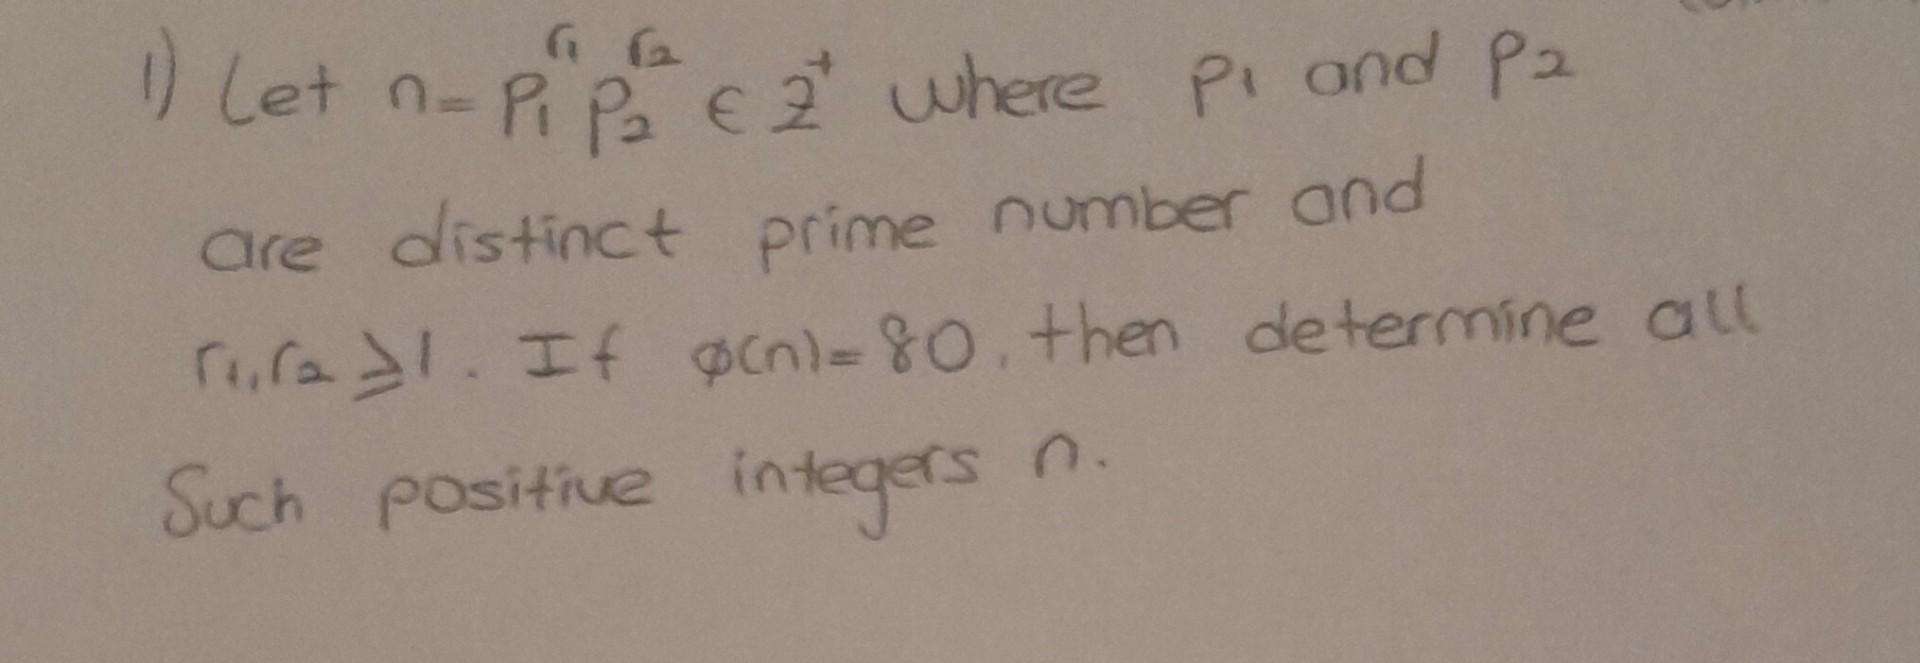 1) Let n = p₁^r₁ p₂^r₂ ∈ Z⁺ where p₁ and p₂
are distinct prime number and
r₁, r₂ ⩾ 1. If φ(n) = 80, then determine all
Such positive integers n.